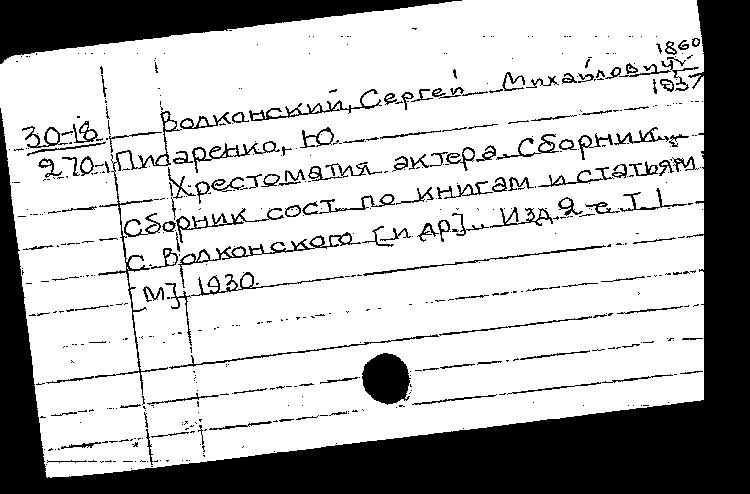 1860
Волконский, Сергей Михайлович
1937
30-18
270-1 Писаренко, Ю.
Хрестоматия актера. Сборник...
Сборник сост. по книгам и статьям
С. Волконского [и др.]. Изд. 2-е. Т. 1
[М]. 1930.